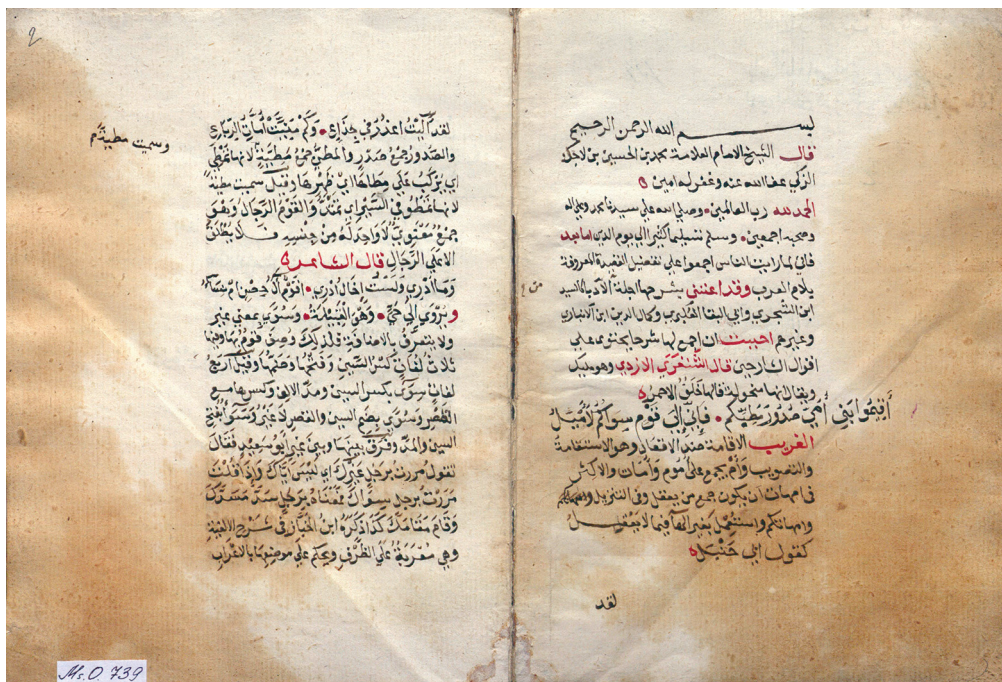 بسم الله الرحمن الرحيم
قال الشيخ الامام العلامة محمد بن الحسين بن
الزكي عفا الله عنه وغفر له امين
الحمد لله رب العالمين وصلى الله على سيدنا محمد وعلى اله
وصحبه اجمعين وسلم تسليما كثيرا الى يوم الدين اما بعد
فاني لما رايت الناس اجمعوا على تفضيل القصيدة المعروفة
بلام العرب وقد اعتنى بشرحها اجلة الادباء كالسيد
ابن الشجري وابي البقا العكبري وكمال الدين ابن الانباري
وغيرهم احببت ان اجمع لها شرحا يحتوي على
اقوال الشارحين قال الشنفري الازدي وهو
ويقال انها منحولة قالها خلف الاحمر
أقيموا بني أمي صدور مطيكم فإني إلى قوم سواكم لأميل
الغريب الاقامة ضد الاقعاد وهو الاستقامة
والتصويب وأم يجمع على أموم وأمات والاكثر
في امهات ان يكون جمع من يعقل وفي التنزيل وامهاتكم
وامهاتكم واستعمل بغير الهاء فيما لا يعقل
كقول ابي حنبل
لقد
2
لقد آليت اعذر في جذاع وكم منيت أمات الرباع
والصدور جمع صدر والمطي جمع مطية لانها تمتطى
اي يركب على مطاها اي ظهرها وقيل سميت مطية
لانها تمطو في السير اي تمتد والقوم الرجال وهو
جمع معنوي لا واحد له من جنسه فلا يطلق
الا على الرجال قال الشاعر
وما ادري ولست اخال ادري اقوم آل حصن ام نساء
ويروى الى حي وهو القبيلة وسوى بمعنى غير
ولا يتعرف بالاضافة فلذلك وصف قوم بها وفيها
ثلاث لغات كسر السين وفتحها وضمها وقيل اربع
لغات سوى بكسر السين ومد الالف وكسرها مع
القصر وسوى بضم السين والقصر لا غير وسواء بفتح
السين والمد وفرق بينها وبين غير ابو سعيد فقال
تقول مررت برجل غيرك اي ليس اياك واذا قلت
مررت برجل سواك فمعناه برجل سد مسدك
وقام مقامك كذا ذكره ابن الخباز في شرح الالفية
وهي معربة على الظرف ويحكم على موضعها بالاعراب
وسميت مطية
Ms. O. 739